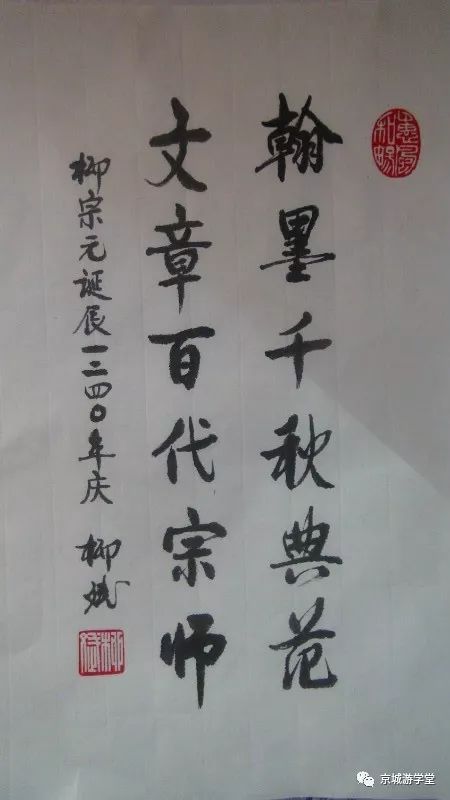 翰墨千秋典范
文章百代宗师
柳宗元诞辰一二四〇年庆 柳斌
柳斌
京城游学堂